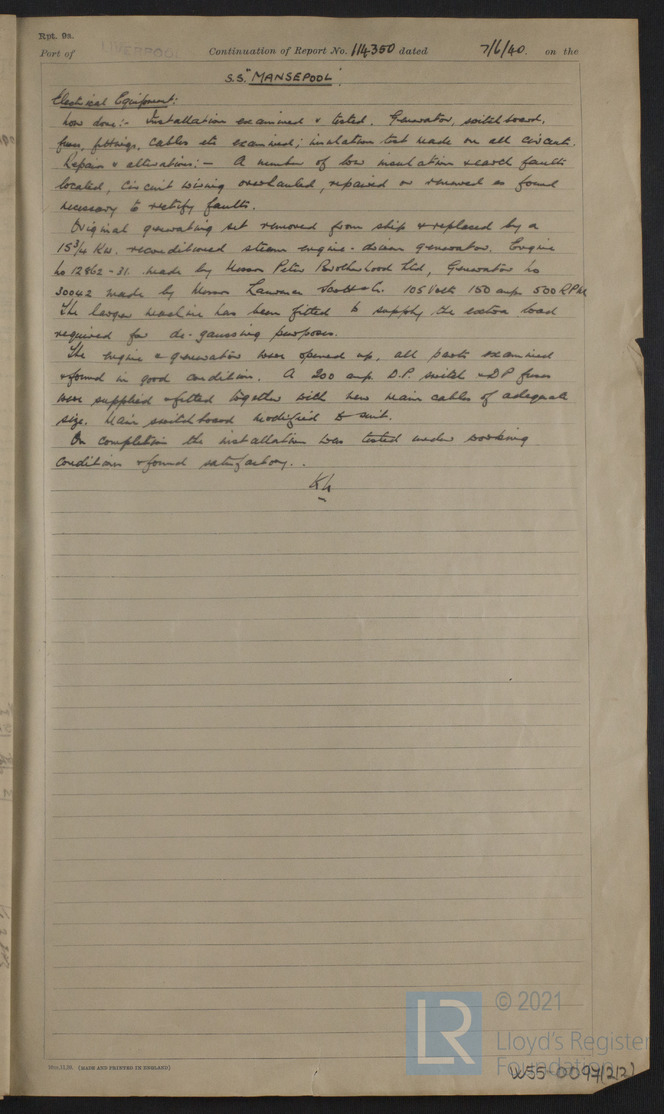 Rpt. 9a.
Port of LIVERPOOL Continuation of Report No. 114350 dated 7/6/40. on the
S.S. "MANSEPOOL".
Electrical Equipment:
Now done:- Installation examined & tested. Generator, switchboard,
fuses, fittings, cables etc examined; insulation test made on all circuits.
Repairs & alterations:- A number of low insulation & earth faults
located, circuit wiring overhauled, repaired or renewed as found
necessary to rectify faults.
Original generating set removed from ship & replaced by a
15¾ Kw. reconditioned steam engine-driven generator. Engine
No 12862-31. made by Messrs Peter Brotherhood Ltd, Generator No
30042 made by Messrs Laurence Scott & Co. 105 Volts 150 amps 500 RPM
The larger machine has been fitted to supply the extra load
required for de-gaussing purposes.
The engine & generator were opened up, all parts examined
& found in good condition. A 200 amp. D.P. switch & DP fuses
were supplied & fitted together with new main cables of adequate
size. Main switchboard modified to suit.
On completion the installation was tested under working
conditions & found satisfactory.
(MADE AND PRINTED IN ENGLAND)
LR
© 2021
Lloyd's Register
Foundation
W55-0094(2/2)